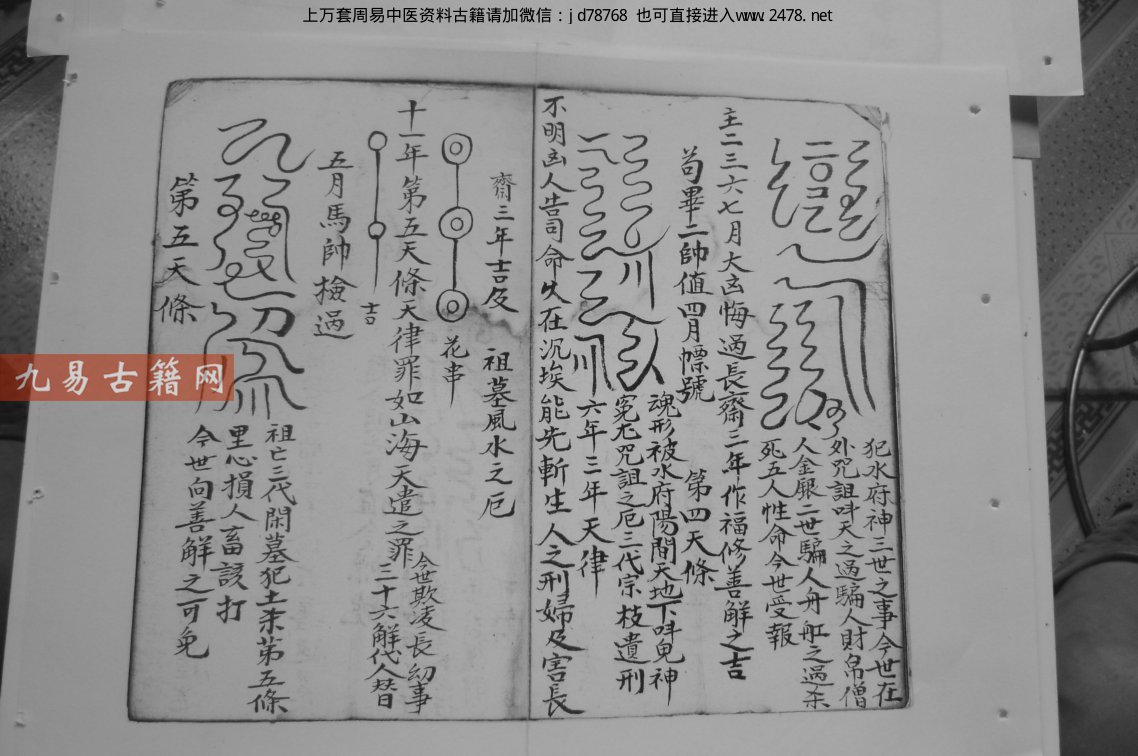 上万套周易中医资料古籍请加微信：jd78768 也可直接进入www.2478.net
犯水府神三世之事今世在
外咒詛呌天之過騙人財帛僧
人金銀二世騙人舟舡之過杀
死五人性命今世受報
主二三六七月大凶悔過長齋三年作福修善解之吉
苟畢二帥值四月幖號
第四天條
魂形被水府陽間天地下呌鬼神
冤尤咒詛之厄三代宗枝遺刑
六年三年天律
不明凶人告司命久在沉埃能先斬生人之刑婦及害長
齋三年吉反
祖墓風水之厄
花串
十一年第五天條天律罪如山海天遣之罪
今世欺凌長幼事
三十六解代人替
吉
五月馬帥撿過
祖亡三代閑墓犯土杀第五條
里心損人畜該打
今世向善解之可免
第五天條
九易古籍网